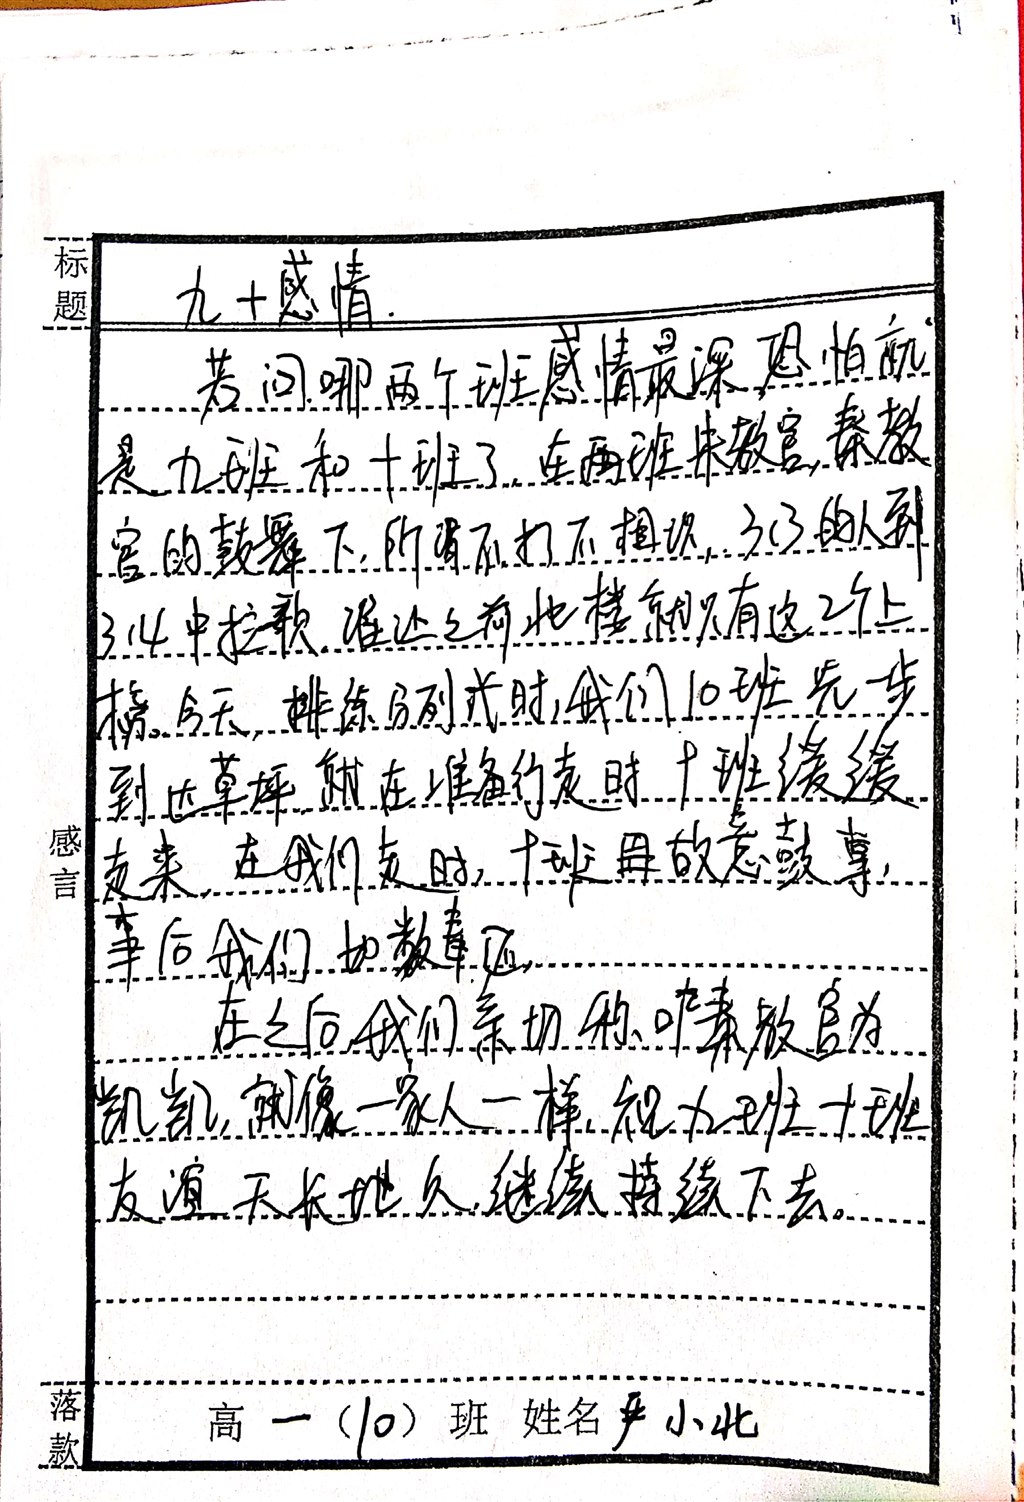 标题
九十感情.
若问哪两个班感情最深,恐怕就
是九班和十班了,在两班朱教官,秦教
官的鼓舞下,所谓不打不相识, 313的人到
314中拉歌,
楼就只有这2个上
榜。今天,排练分列式时,我们10班先一步
到达草坪,就在准备行走时十班缓缓
走来,在我们走时,十班 故意鼓掌,
事后我们
感言
在之后,我们亲切称呼秦教官为
凯凯,就像一家人一样,祝九班十班
友谊天长地久,继续持续下去。
落款
高一(10)班 姓名 严小北